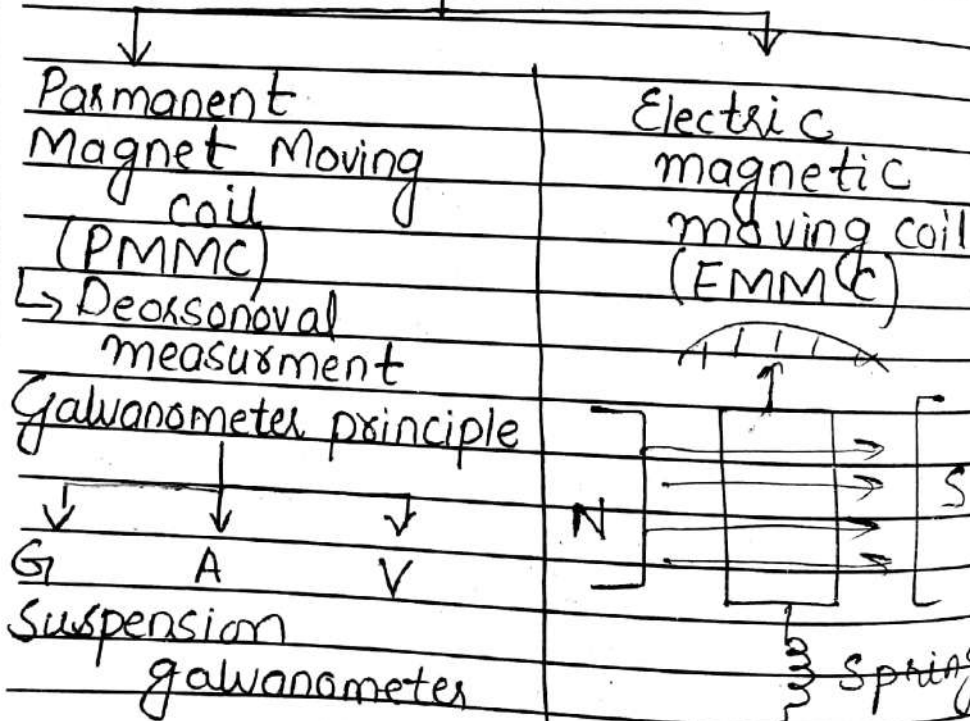 Parmanent
Magnet Moving
coil
(PMMC)
↳ Deorsonoval
measurment
Galvanometer principle
G A V
Suspension
galvanometer
Electric
magnetic
moving coil
(EMMC)
N S
Spring